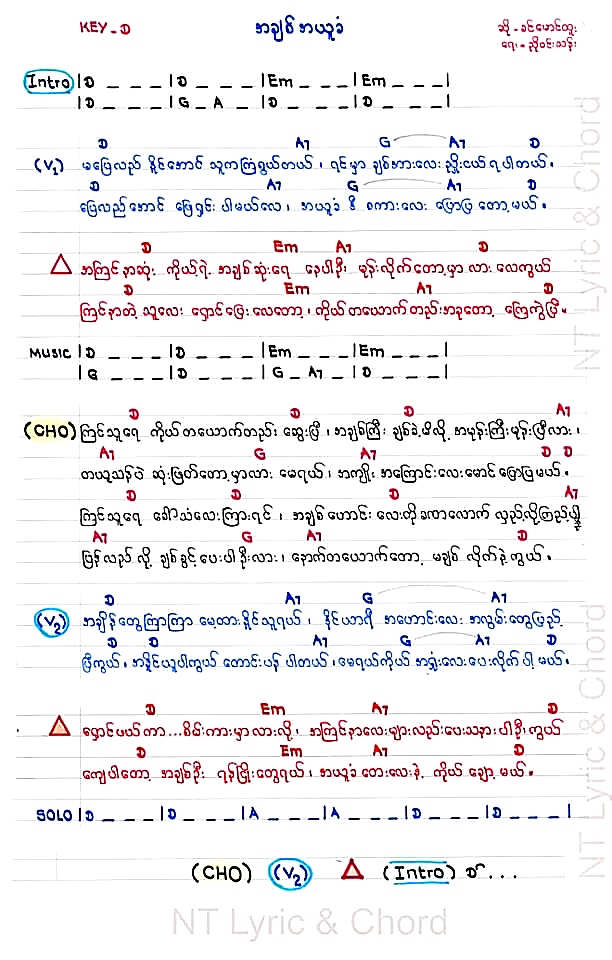 KEY - D
အချစ်အယူခံ
ဆို - ခင်မောင်ထူး
ရေး - ညိုဝင်းသန်း
Intro |D _ _ _ |D _ _ _ |Em _ _ _ |Em _ _ _ |
|D _ _ _ |G _ A _ |D _ _ _ |D _ _ _ |
D A7 G A7 D
(V1) မပြေလည် နိုင်အောင် သူကကြံရွယ်တယ် ၊ ရင်မှာ ချစ်အားလေး ညှိုးငယ် ရပါတယ် ။
D A7 G A7 D
ပြေလည်အောင် ဖြေရှင်း ပါမယ်လေ ၊ အယူခံ ဒီ စကားလေး ပြောပြ တော့မယ် ။
D Em A7 D
△ အကြင်နာဆုံး ကိုယ့်ရဲ့ အချစ်ဆုံးရေ နေပါဦး မုန်းလိုက်တော့မှာ လား လေကွယ်
D Em A7 D
ကြင်နာတဲ့ သူလေး ရှောင်ပြေးလေတော့ ၊ ကိုယ်တယောက်တည်းအခုတော့ ကြေကွဲပြီ ။
MUSIC |D _ _ _ |D _ _ _ |Em _ _ _ |Em _ _ _ |
|G _ _ _ |D _ _ _ |G _ A7 _ |D _ _ _ |
D D D A7
(CHO) ကြင်သူရေ ကိုယ်တယောက်တည်း ဆွေးပြီ ၊ အချစ်ကြီး ချစ်ခဲ့မိလို့ အမုန်းကြီးမုန်းပြီလား ၊
A7 G A7 D D
တယူသန်ပဲ ဆုံးဖြတ်တော့မှာလား မေရယ် ၊ အကျိုး အကြောင်းလေးမောင်ပြောပြမယ် ။
D D D A7
ကြင်သူရေ ခေါ်သံလေးကြားရင် ၊ အချစ်ဟောင်း လေးကိုခဏလောက် လှည့်လို့ကြည့်ပါ့
A7 G A7 D
ပြန်လည် လို့ ချစ်ခွင့်ပေးပါဦးလား ၊ နောက်တယောက်တော့ မချစ် လိုက်နဲ့ကွယ် ။
D A7 G A7
(V2) အချိန်တွေကြာကြာ မေ့ထားနိုင်သူရယ် ၊ နိုင်ယာရီ အဟောင်းလေး အလွမ်းတွေပြည့်
D D A7 G A7 D
ပြီကွယ် ။ အနိုင်ယူပါကွယ် တောင်းပန် ပါတယ် ၊ မေရယ်ကိုယ် အရှုံးလေးပေးလိုက်ပါ့မယ် ။
D Em A7 D
△ ရှောင်ဖယ်ကာ...စိမ်းကားမှာလားလို့ ၊ အကြင်နာလေးများလည်းပေးသနားပါဦးကွယ်
D Em A7 D
ကျေပါတော့ အချစ်ဦး ရန်ငြိုးတွေရယ် ၊ အယူခံတေးလေးနဲ့ ကိုယ် ချော့မယ် ။
SOLO |D _ _ _ |D _ _ _ |A _ _ _ |A _ _ _ |D _ _ _ |D _ _ _ |
(CHO) (V2) △ (Intro) D ...
NT Lyric & Chord
NT Lyric & Chord
NT Lyric & Chord